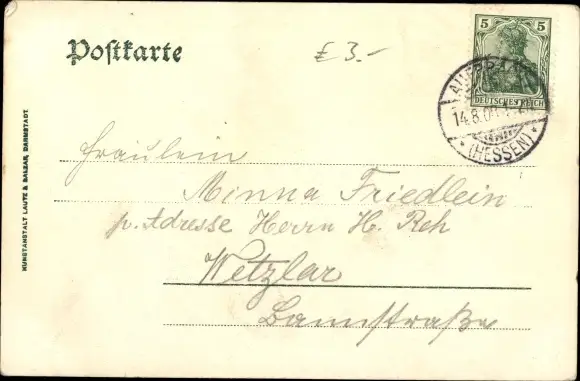 Postkarte
£ 3.-
5 5
DEUTSCHES REICH
AUERBACH
14.8.0
* (HESSEN) *
Fräulein
Minna Friedlein
p. Adresse Herrn H. Reh
Wetzlar
KUNSTANSTALT LAUTZ & BALZAR, DARMSTADT.